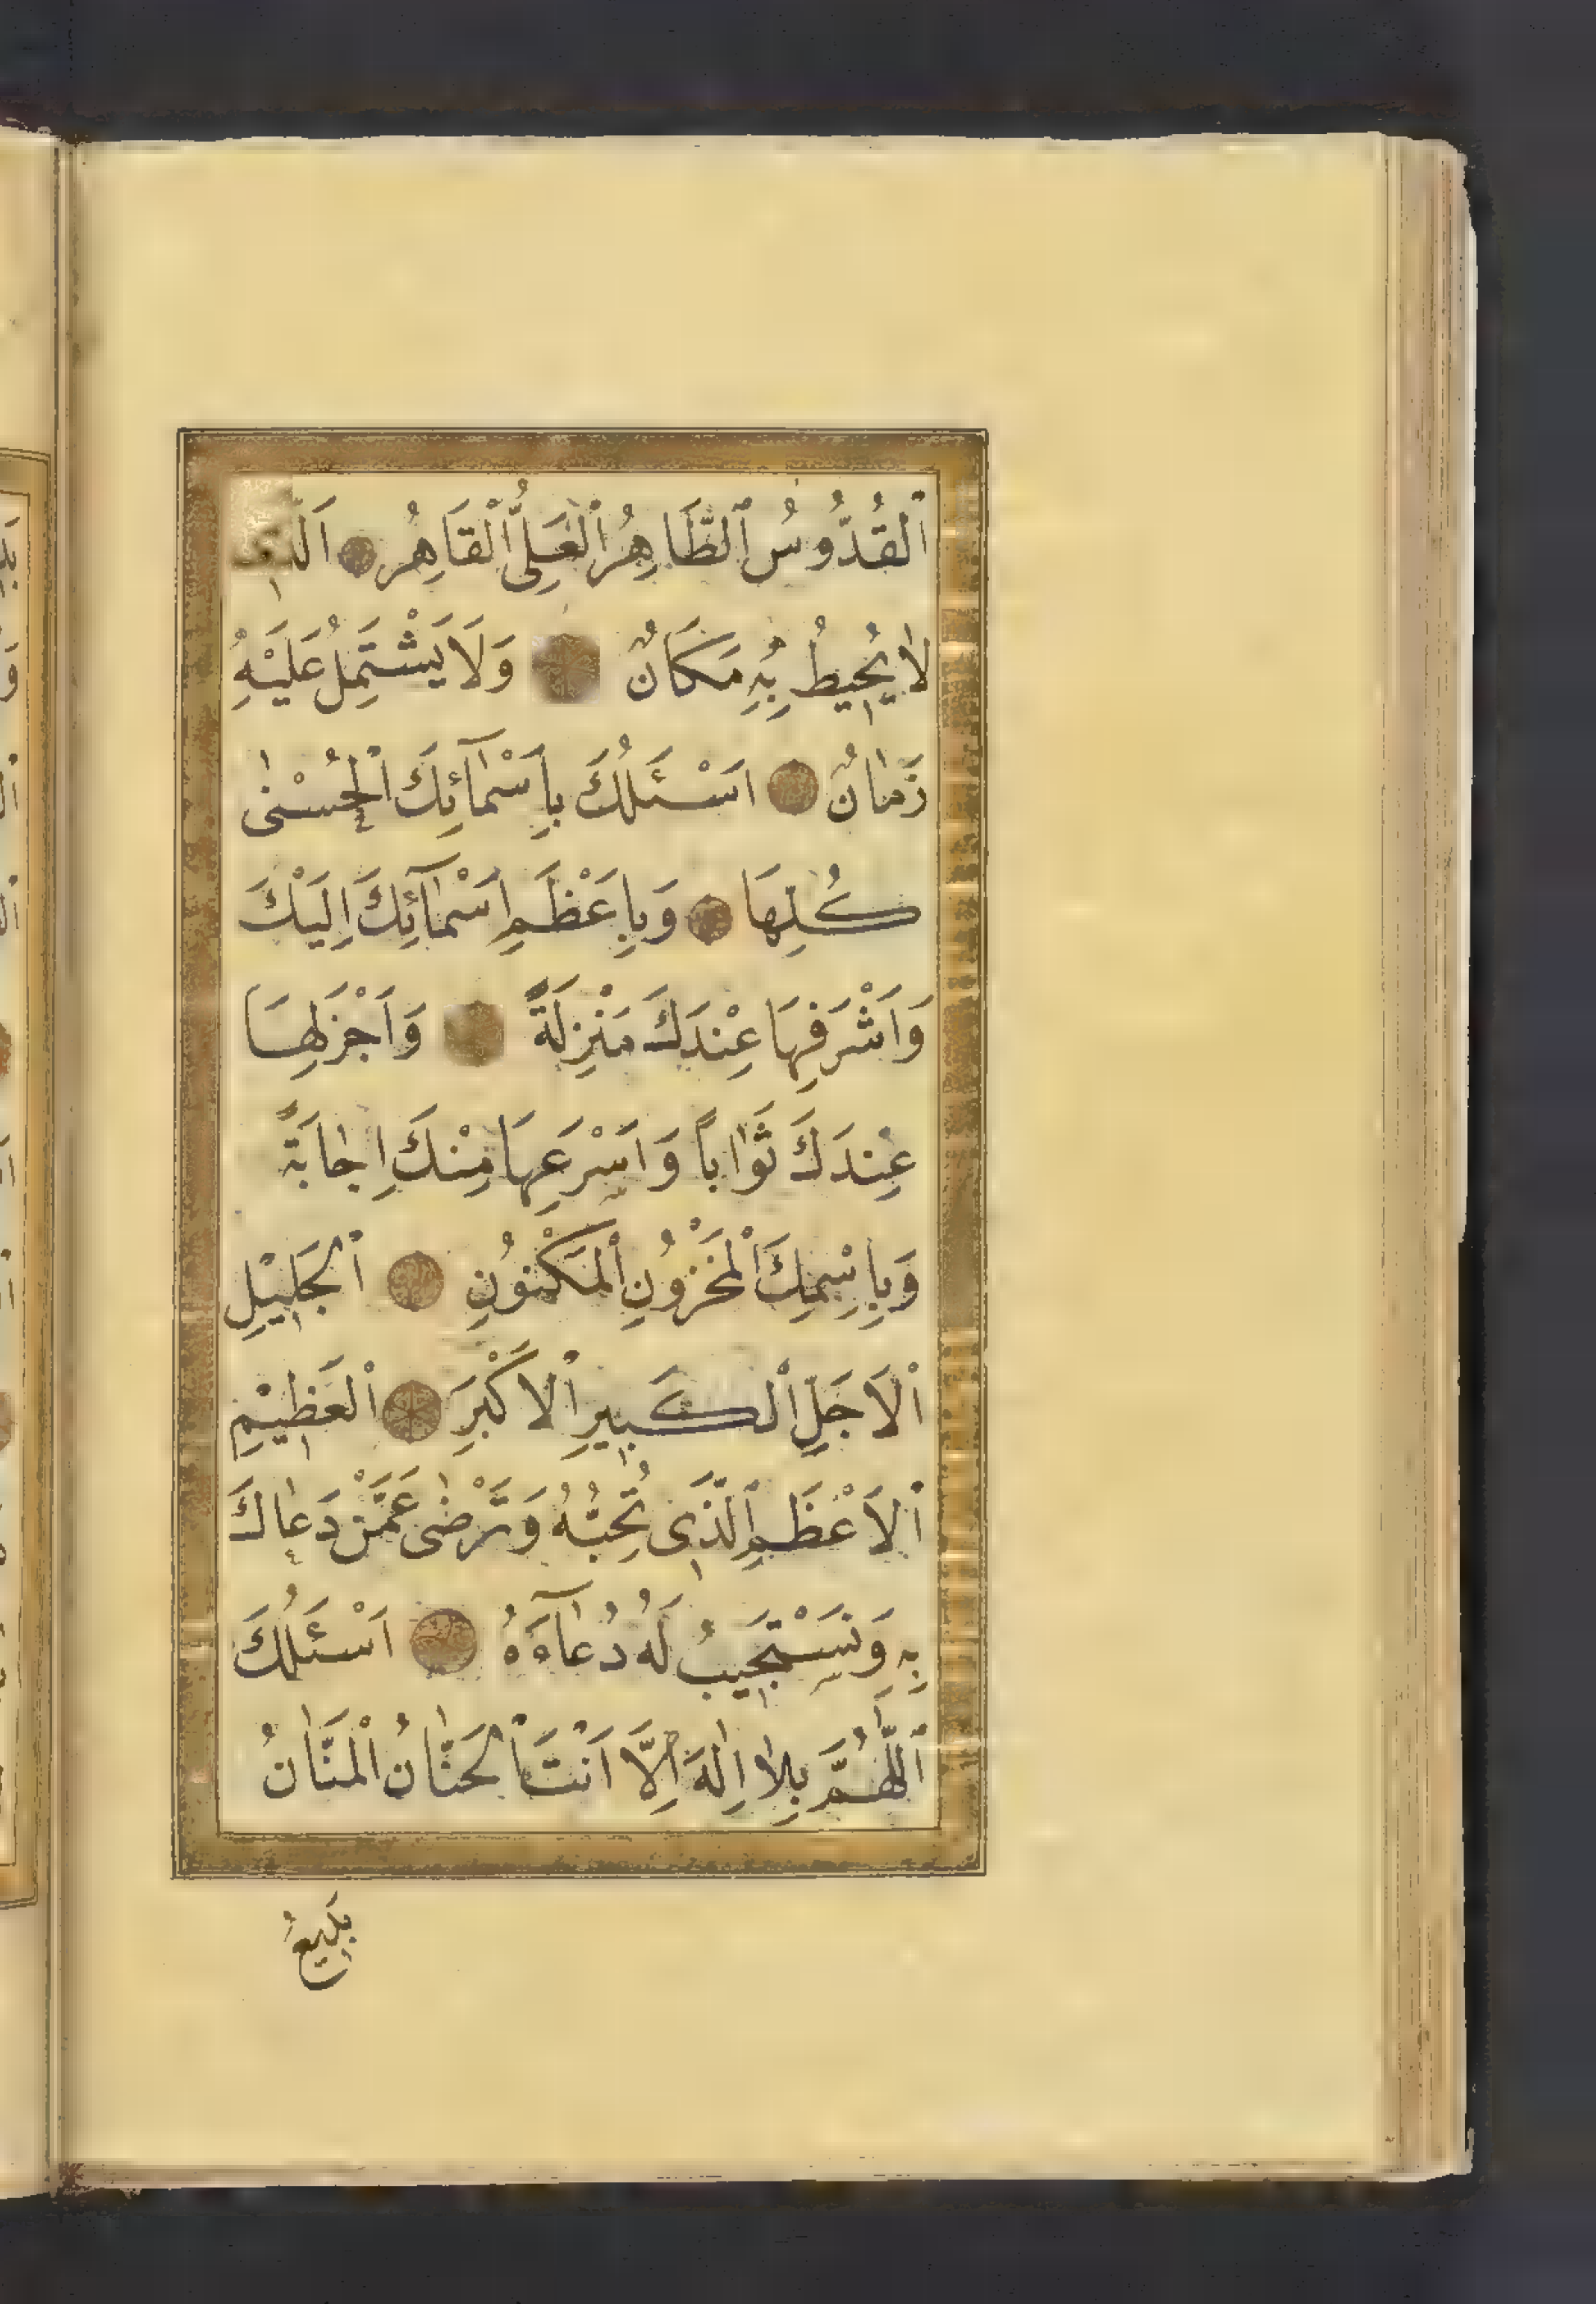 اَلْقُدُّوسُ اَلطَّاهِرُ اَلْعَلِىُّ اَلْقَاهِرُ اَلَّذِى
لَا يُحِيطُ بِهِ مَكَانٌ وَلَا يَشْتَمِلُ عَلَيْهِ
زَمَانٌ اَسْئَلُكَ بِاَسْمَآئِكَ اَلْحُسْنٰى
كُلِّهَا وَبِاَعْظَمِ اَسْمَآئِكَ اِلَيْكَ
وَاَشْرَفِهَا عِنْدَكَ مَنْزِلَةً وَاَجْزَلِهَا
عِنْدَكَ ثَوَابًا وَاَسْرَعِهَا مِنْكَ اِجَابَةً
وَبِاِسْمِكَ اَلْمَخْزُونِ اَلْمَكْنُونِ اَلْجَلِيْلِ
اَلْاَجَلِّ اَلْكَبِيرِ اَلْاَكْبَرِ اَلْعَظِيْمِ
اَلْاَعْظَمِ اَلَّذِى تُحِبُّهُ وَتَرْضٰى عَمَّنْ دَعَاكَ
بِهِ وَتَسْتَجِيبُ لَهُ دُعَآءَهُ اَسْئَلُكَ
اَللّٰهُمَّ بِلَا اِلٰهَ اِلَّا اَنْتَ اَلْحَنَّانُ اَلْمَنَّانُ
بَدِيعُ